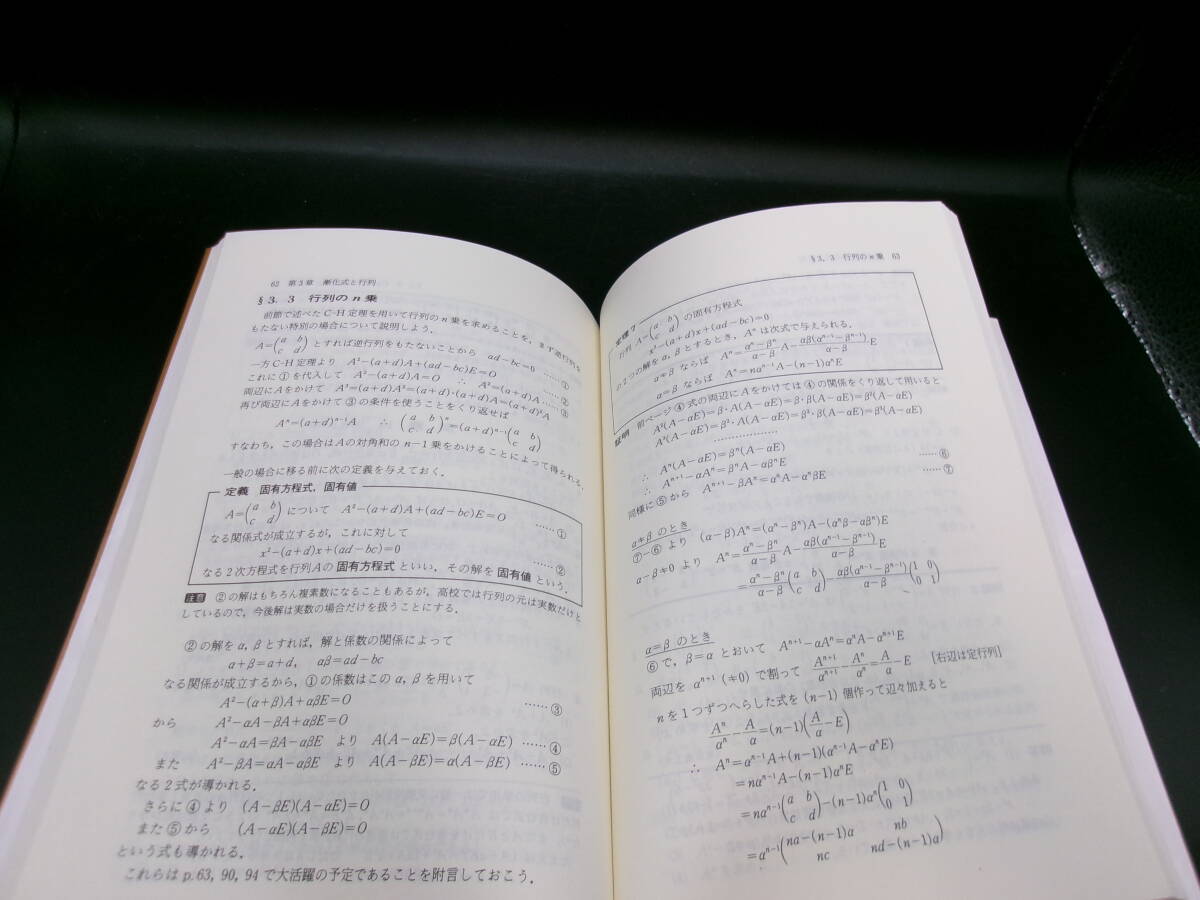 62 第3章 漸化式と行列
§3. 3 行列の n 乗
前節で述べた C-H 定理を用いて行列の n 乗を求めることを,まず逆行列を
もたない特別の場合について説明しよう.
A=(a b
c d) とすれば逆行列をもたないことから ad-bc=0 ……①
一方 C-H 定理より A²-(a+d)A+(ad-bc)E=O
これに①を代入して A²-(a+d)A=O ∴ A²=(a+d)A ……②
両辺に A をかけて A³=(a+d)A²=(a+d)・(a+d)A=(a+d)²A ③
再び両辺に A をかけて③の条件を使うことをくり返せば
Aⁿ=(a+d)ⁿ⁻¹A ∴ (a b
c d)ⁿ=(a+d)ⁿ⁻¹(a b
c d)
すなわち,この場合は A の対角和の n-1 乗をかけることによって得られる.
一般の場合に移る前に次の定義を与えておく.
定義 固有方程式,固有値
A=(a b
c d) について A²-(a+d)A+(ad-bc)E=O ……①
なる関係式が成立するが,これに対して
x²-(a+d)x+(ad-bc)=0 ……②
なる2次方程式を行列 A の 固有方程式 といい,その解を 固有値 という.
注意 ②の解はもちろん複素数になることもあるが,高校では行列の元は実数だけと
しているので,今後解は実数の場合だけを扱うことにする.
②の解を α, β とすれば,解と係数の関係によって
α+β=a+d, αβ=ad-bc
なる関係が成立するから,①の係数はこの α, β を用いて
A²-(α+β)A+αβE=O ……③
から A²-αA-βA+αβE=O
A²-αA=βA-αβE より A(A-αE)=β(A-αE) ……④
また A²-βA=αA-αβE より A(A-βE)=α(A-βE) ……⑤
なる2式が導かれる.
さらに④より (A-βE)(A-αE)=O
また⑤から (A-αE)(A-βE)=O
という式も導かれる.
これらは p.63, 90, 94 で大活躍の予定であることを附言しておこう.
§3. 3 行列の n 乗 63
定理7
行列 A=(a b
c d) の固有方程式
x²-(a+d)x+(ad-bc)=0
の2つの解を α, β とするとき,Aⁿ は次式で与えられる.
α≠β ならば Aⁿ=(αⁿ-βⁿ)/(α-β)A-αβ(αⁿ⁻¹-βⁿ⁻¹)/(α-β)E
α=β ならば Aⁿ=nαⁿ⁻¹A-(n-1)αⁿE
証明 前ページ④式の両辺に A をかけては④の関係をくり返して用いると
A²(A-αE)=β・A(A-αE)=β・β(A-αE)=β²(A-αE)
A³(A-αE)=β²・A(A-αE)=β²・β(A-αE)=β³(A-αE)
………………
∴ Aⁿ(A-αE)=βⁿ(A-αE)
∴ Aⁿ⁺¹-αAⁿ=βⁿA-αβⁿE ……⑥
同様に⑤から Aⁿ⁺¹-βAⁿ=αⁿA-αⁿβE ……⑦
α≠β のとき
⑦-⑥ より (α-β)Aⁿ=(αⁿ-βⁿ)A-(αⁿβ-αβⁿ)E
α-β≠0 より Aⁿ=(αⁿ-βⁿ)/(α-β)A-αβ(αⁿ⁻¹-βⁿ⁻¹)/(α-β)E
=(αⁿ-βⁿ)/(α-β)(a b
c d)-αβ(αⁿ⁻¹-βⁿ⁻¹)/(α-β)(1 0
0 1)
α=β のとき
⑥で,β=α とおいて Aⁿ⁺¹-αAⁿ=αⁿA-αⁿ⁺¹E
両辺を αⁿ⁺¹ (≠0) で割って Aⁿ⁺¹/αⁿ⁺¹-Aⁿ/αⁿ=A/α-E [右辺は定行列]
n を1つずつへらした式を (n-1) 個作って辺々加えると
Aⁿ/αⁿ-A/α=(n-1)(A/α-E)
∴ Aⁿ=αⁿ⁻¹A+(n-1)(αⁿ⁻¹A-αⁿE)
=nαⁿ⁻¹A-(n-1)αⁿE
=nαⁿ⁻¹(a b
c d)-(n-1)αⁿ(1 0
0 1)
=αⁿ⁻¹(na-(n-1)α nb
nc nd-(n-1)α)